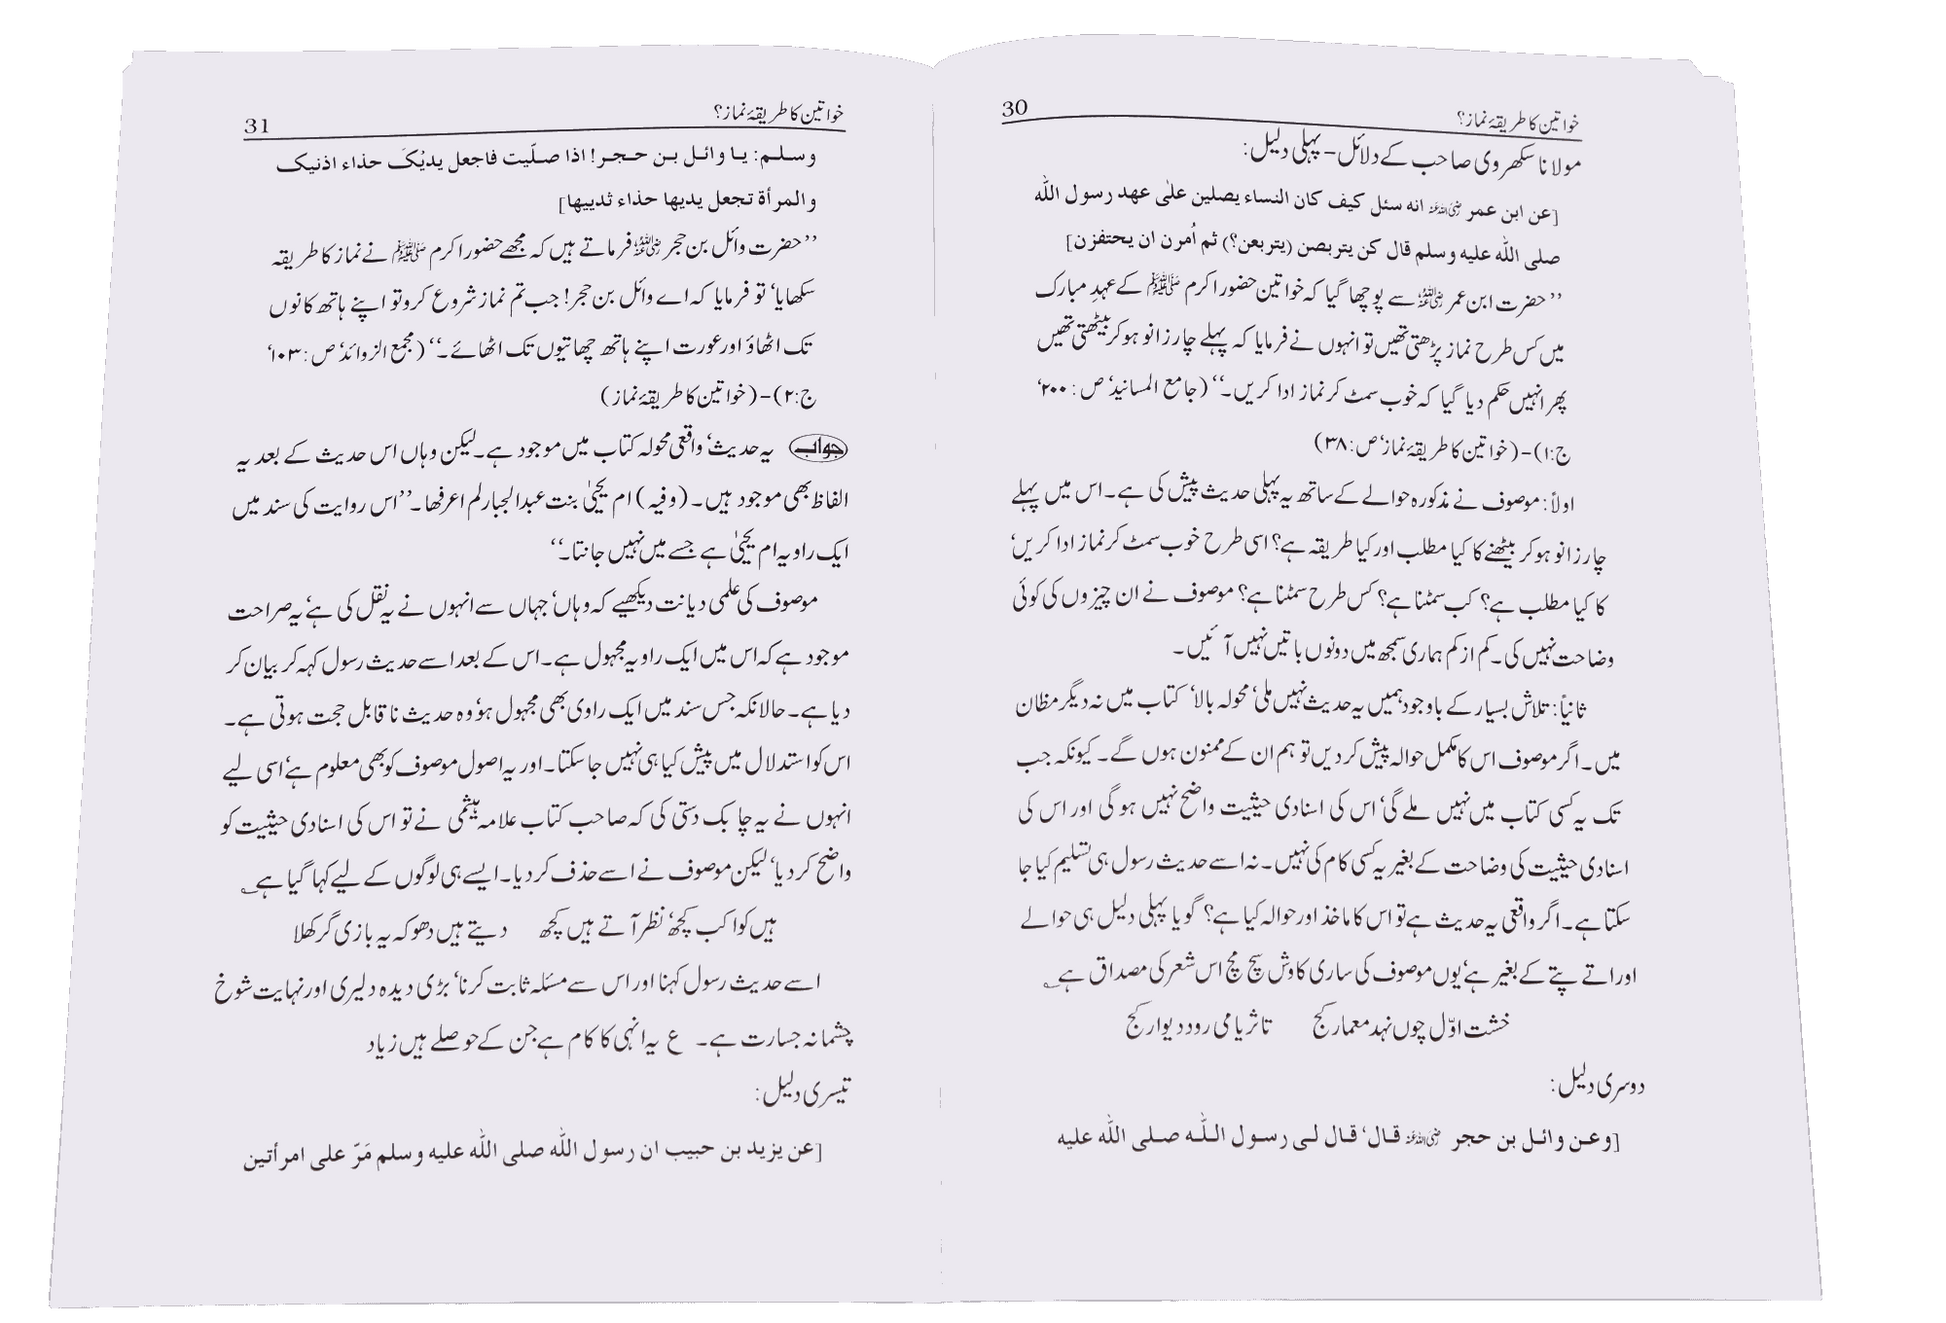 خواتین کا طریقۂ نماز؟ 30
مولانا سکھروی صاحب کے دلائل – پہلی دلیل:
[عن ابن عمر رضی اللہ عنہ انه سئل كيف كان النساء يصلين علٰى عهد رسول الله
صلى الله عليه وسلم قال كن يتربصن (يتربعن؟) ثم اُمرن ان يحتفزن]
’’حضرت ابن عمر رضی اللہ عنہ سے پوچھا گیا کہ خواتین حضور اکرم ﷺ کے عہدِ مبارک
میں کس طرح نماز پڑھتی تھیں تو انہوں نے فرمایا کہ پہلے چار زانو ہو کر بیٹھتی تھیں
پھر انہیں حکم دیا گیا کہ خوب سمٹ کر نماز ادا کریں۔‘‘ (جامع المسانید‘ ص: ۲۰۰‘
ج:۱)–(خواتین کا طریقۂ نماز‘ ص: ۳۸)
اولاً: موصوف نے مذکورہ حوالے کے ساتھ یہ پہلی حدیث پیش کی ہے۔ اس میں پہلے
چار زانو ہو کر بیٹھنے کا کیا مطلب اور کیا طریقہ ہے؟ اسی طرح خوب سمٹ کر نماز ادا کریں‘
کا کیا مطلب ہے؟ کب سمٹنا ہے؟ کس طرح سمٹنا ہے؟ موصوف نے ان چیزوں کی کوئی
وضاحت نہیں کی۔ کم از کم ہماری سمجھ میں دونوں باتیں نہیں آئیں۔
ثانیاً: تلاش بسیار کے باوجود ہمیں یہ حدیث نہیں ملی‘ محولہ بالا‘ کتاب میں نہ دیگر مظان
میں۔ اگر موصوف اس کا مکمل حوالہ پیش کر دیں تو ہم ان کے ممنون ہوں گے۔ کیونکہ جب
تک یہ کسی کتاب میں نہیں ملے گی‘ اس کی اسنادی حیثیت واضح نہیں ہوگی اور اس کی
اسنادی حیثیت کی وضاحت کے بغیر یہ کسی کام کی نہیں۔ نہ اسے حدیث رسول ہی تسلیم کیا جا
سکتا ہے۔ اگر واقعی یہ حدیث ہے تو اس کا ماخذ اور حوالہ کیا ہے؟ گویا پہلی دلیل ہی حوالے
اور اتے پتے کے بغیر ہے‘ یوں موصوف کی ساری کاوش سچ مچ اس شعر کی مصداق ہے؂
خشت اوّل چوں نہد معمار کج تا ثریا می رود دیوار کج
دوسری دلیل:
[وعن وائل بن حجر رضی اللہ عنہ قال‘ قال لى رسول الله صلى الله عليه
خواتین کا طریقۂ نماز؟ 31
وسلم: يا وائل بن حجر! اذا صلّيت فاجعل يديْكَ حذاء اذنيك
والمرأة تجعل يديها حذاء ثدييها]
’’حضرت وائل بن حجر رضی اللہ عنہ فرماتے ہیں کہ مجھے حضور اکرم ﷺ نے نماز کا طریقہ
سکھایا‘ تو فرمایا کہ اے وائل بن حجر! جب تم نماز شروع کرو تو اپنے ہاتھ کانوں
تک اٹھاؤ اور عورت اپنے ہاتھ چھاتیوں تک اٹھائے۔‘‘ (مجمع الزوائد‘ ص: ۱۰۳‘
ج:۲)–(خواتین کا طریقۂ نماز)
جواب یہ حدیث‘ واقعی محولہ کتاب میں موجود ہے۔ لیکن وہاں اس حدیث کے بعد یہ
الفاظ بھی موجود ہیں۔ (وفیہ) ام یحییٰ بنت عبدالجبار لم اعرفھا۔’’اس روایت کی سند میں
ایک راویہ ام یحییٰ ہے جسے میں نہیں جانتا۔‘‘
موصوف کی علمی دیانت دیکھیے کہ وہاں‘ جہاں سے انہوں نے یہ نقل کی ہے‘ یہ صراحت
موجود ہے کہ اس میں ایک راویہ مجہول ہے۔ اس کے بعد اسے حدیث رسول کہہ کر بیان کر
دیا ہے۔ حالانکہ جس سند میں ایک راوی بھی مجہول ہو‘ وہ حدیث ناقابل حجت ہوتی ہے۔
اس کو استدلال میں پیش کیا ہی نہیں جا سکتا۔ اور یہ اصول موصوف کو بھی معلوم ہے‘ اسی لیے
انہوں نے یہ چابک دستی کی کہ صاحب کتاب علامہ ہیثمی نے تو اس کی اسنادی حیثیت کو
واضح کر دیا‘ لیکن موصوف نے اسے حذف کر دیا۔ ایسے ہی لوگوں کے لیے کہا گیا ہے؂
ہیں کواکب کچھ‘ نظر آتے ہیں کچھ دیتے ہیں دھوکہ یہ بازی گر کھلا
اسے حدیث رسول کہنا اور اس سے مسئلہ ثابت کرنا‘ بڑی دیدہ دلیری اور نہایت شوخ
چشمانہ جسارت ہے۔ ع یہ انہی کا کام ہے جن کے حوصلے ہیں زیاد
تیسری دلیل:
[عن يزيد بن حبيب ان رسول الله صلى الله عليه وسلم مَرّ على امرأتين